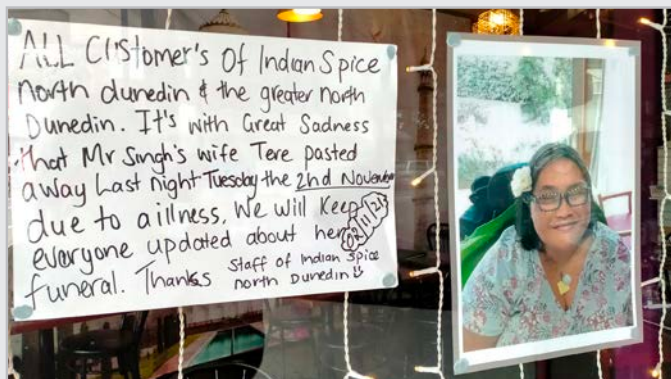 ALL CUstomer's Of Indian Spice
north dunedin & the greater north
Dunedin. It's with Great Sadness
that Mr Singh's wife Tere pasted
away Last night Tuesday the 2nd November
due to a illness. We will Keep
everyone updated about her
02/11/21
funeral. Thanks Staff of Indian Spice
north Dunedin